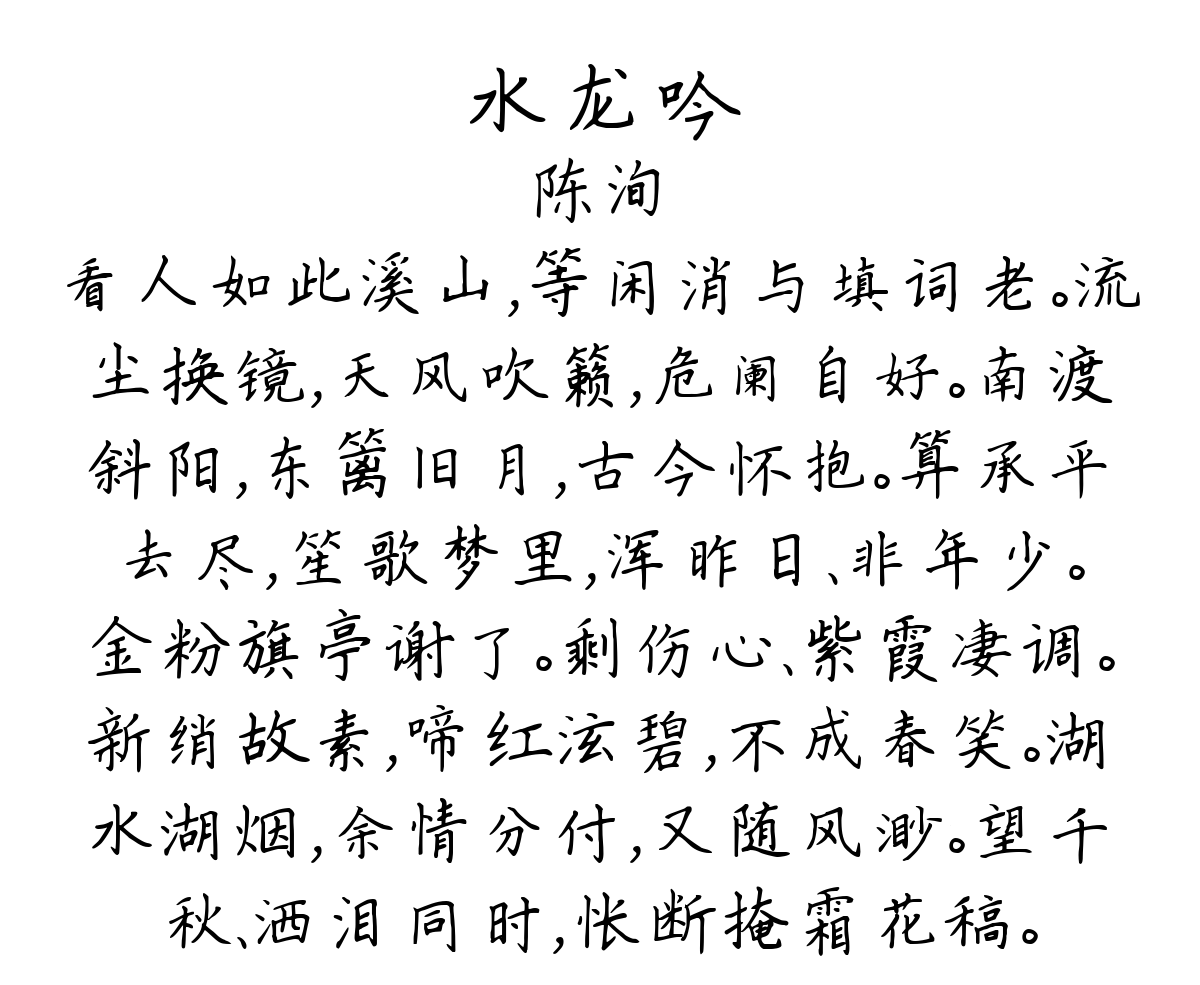 水龙吟
陈洵
看人如此溪山,等闲消与填词老。流
尘换镜,天风吹籁,危阑自好。南渡
斜阳,东篱旧月,古今怀抱。算承平
去尽,笙歌梦里,浑昨日、非年少。
金粉旗亭谢了。剩伤心、紫霞凄调。
新绡故素,啼红泫碧,不成春笑。湖
水湖烟,余情分付,又随风渺。望千
秋、洒泪同时,怅断掩霜花稿。